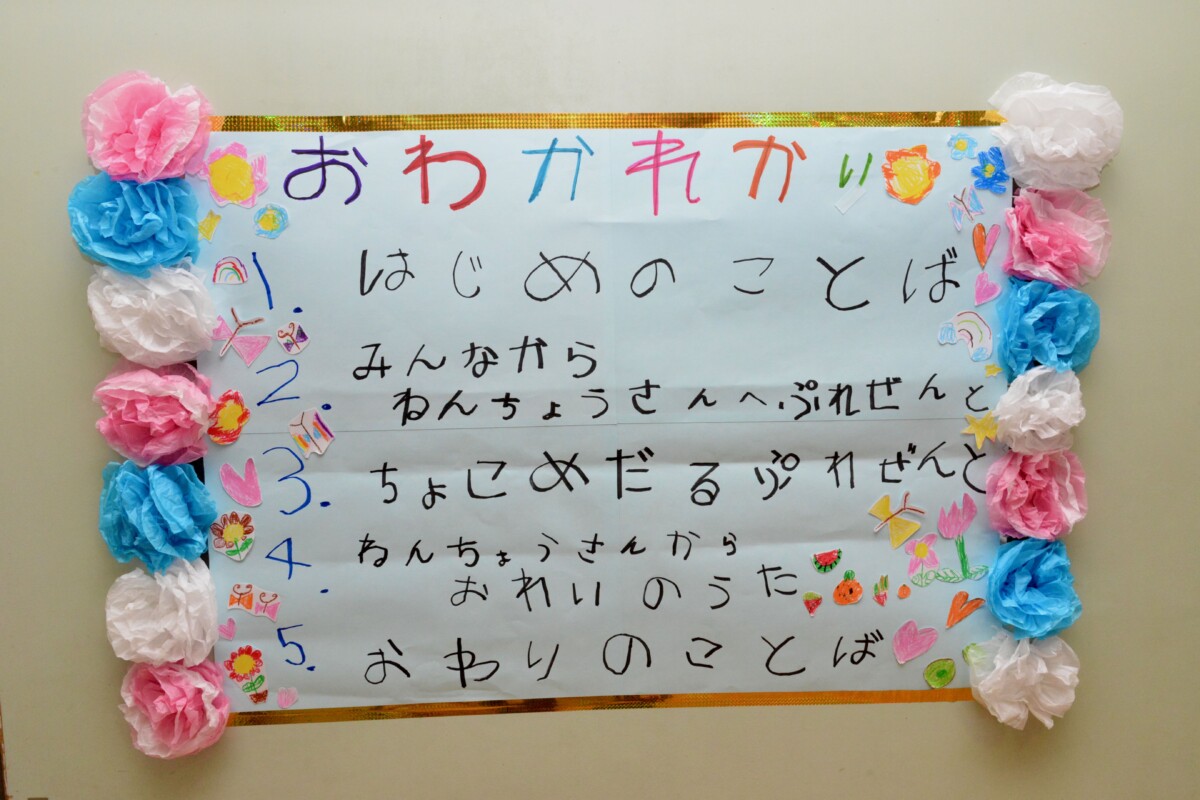 おわかれかい
1. はじめのことば
2. みんなから
ねんちょうさんへぷれぜんと
3. ちょこめだるぷれぜんと
4. ねんちょうさんから
おれいのうた
5. おわりのことば